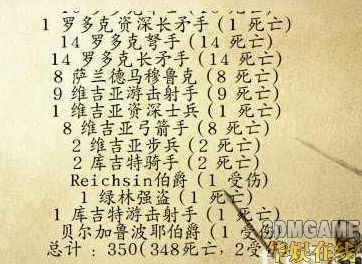 1 罗多克资深长矛手 (1 死亡)
14 罗多克弩手 (14 死亡)
14 罗多克长矛手 (14 死亡)
8 萨兰德马穆鲁克 (8 死亡)
9 维吉亚游击射手 (9 死亡)
1 维吉亚资深士兵 (1 死亡)
8 维吉亚弓箭手 (8 死亡)
2 维吉亚步兵 (2 死亡)
2 库吉特骑手 (2 死亡)
Reichsin伯爵 (1 受伤)
1 绿林强盗 (1 死亡)
1 库吉特游击射手 (1 死亡)
贝尔加鲁波耶伯爵 (1 受伤)
总计 : 350(348死亡, 2受
3DMGAME
华娱在线